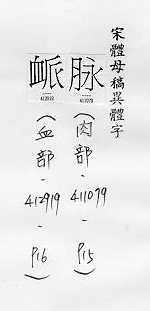 宋體母稿異體字
脉
411079
(肉部-411079-P15)
衇
412919
(血部-412919-P16)